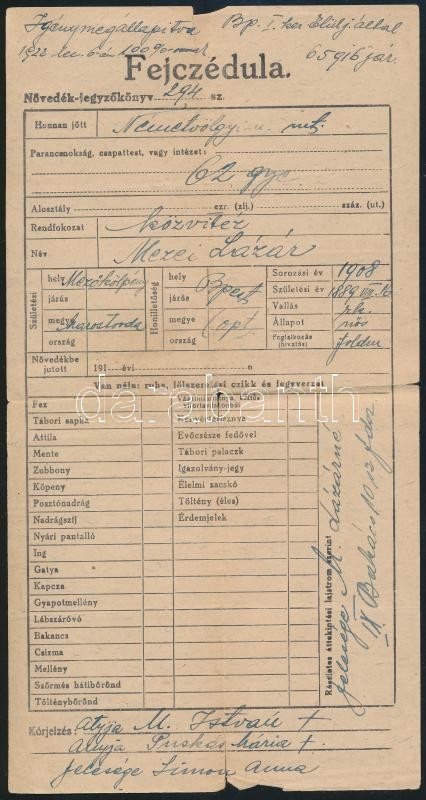 Igénymegállapítva Bp. I. ker Elöljáltal
1922 dec. 6-án 100%-
65916 jár.
Fejczédula.
Növedék-jegyzőkönyv 294 sz.
Honnan jött Németvölgyi u.
Parancsnokság, csapattest, vagy intézet:
62 gye.
Alosztály ezr. (zlj.) száz. (üt.)
Rendfokozat közvitéz
Név Mezei Lázár
Születési hely
járás
megye Marostorda
ország
Honilletőség hely Bpest
járás
megye
ország
Sorozási év 1908
Születési év 1889 VIII.
Vallás
Állapot nős
Foglalkozás (hivatás)
Növedékbe jutott 191 évi n
Van nála: ruha, fölszerelési czikk és fegyverzet
Fez
Tábori sapka
Attila
Mente
Zubbony
Köpeny
Posztónadrág
Nadrágszíj
Nyári pantalló
Ing
Gatya
Kapcza
Gyapotmellény
Lábszáróvó
Bakancs
Csizma
Mellény
Szőrmés hátibőrönd
Tölténybőrönd
Evőcsésze fedővel
Tábori palaczk
Igazolvány-jegy
Élelmi zacskó
Töltény (éles)
Érdemjelek
Részletes áttekintési lajstrom szerint
felesége M. Lázárné
IX Bakács
darabanth
Kórjelzés: atyja M. István +
anyja Puskás Mária +
felesége Simon Anna